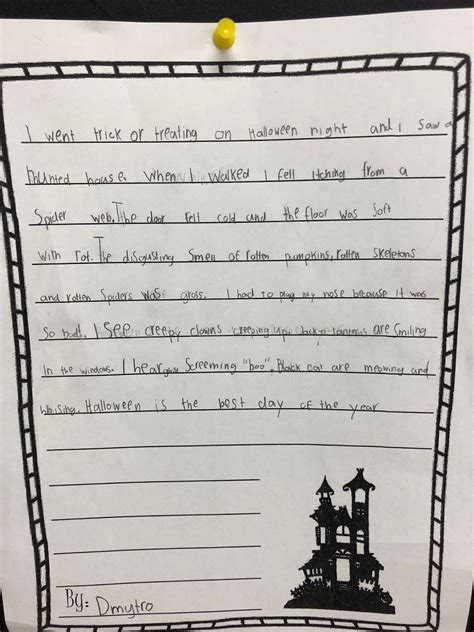 I went trick or treating on Halloween night and I saw a
haunted house. When I walked I felt itching from a
Spider web. The door felt cold and the floor was soft
with rot. The disgusting smell of rotten pumpkins, rotten skeletons
and rotten spiders was gross. I had to plug my nose because it was
So bad. I see creepy clowns creeping up. Jack-o-lanterns are smiling
In the windows. I hear Screeming "boo". Black cat are meowing and
Halloween is the best day of the year
By: Dmytro